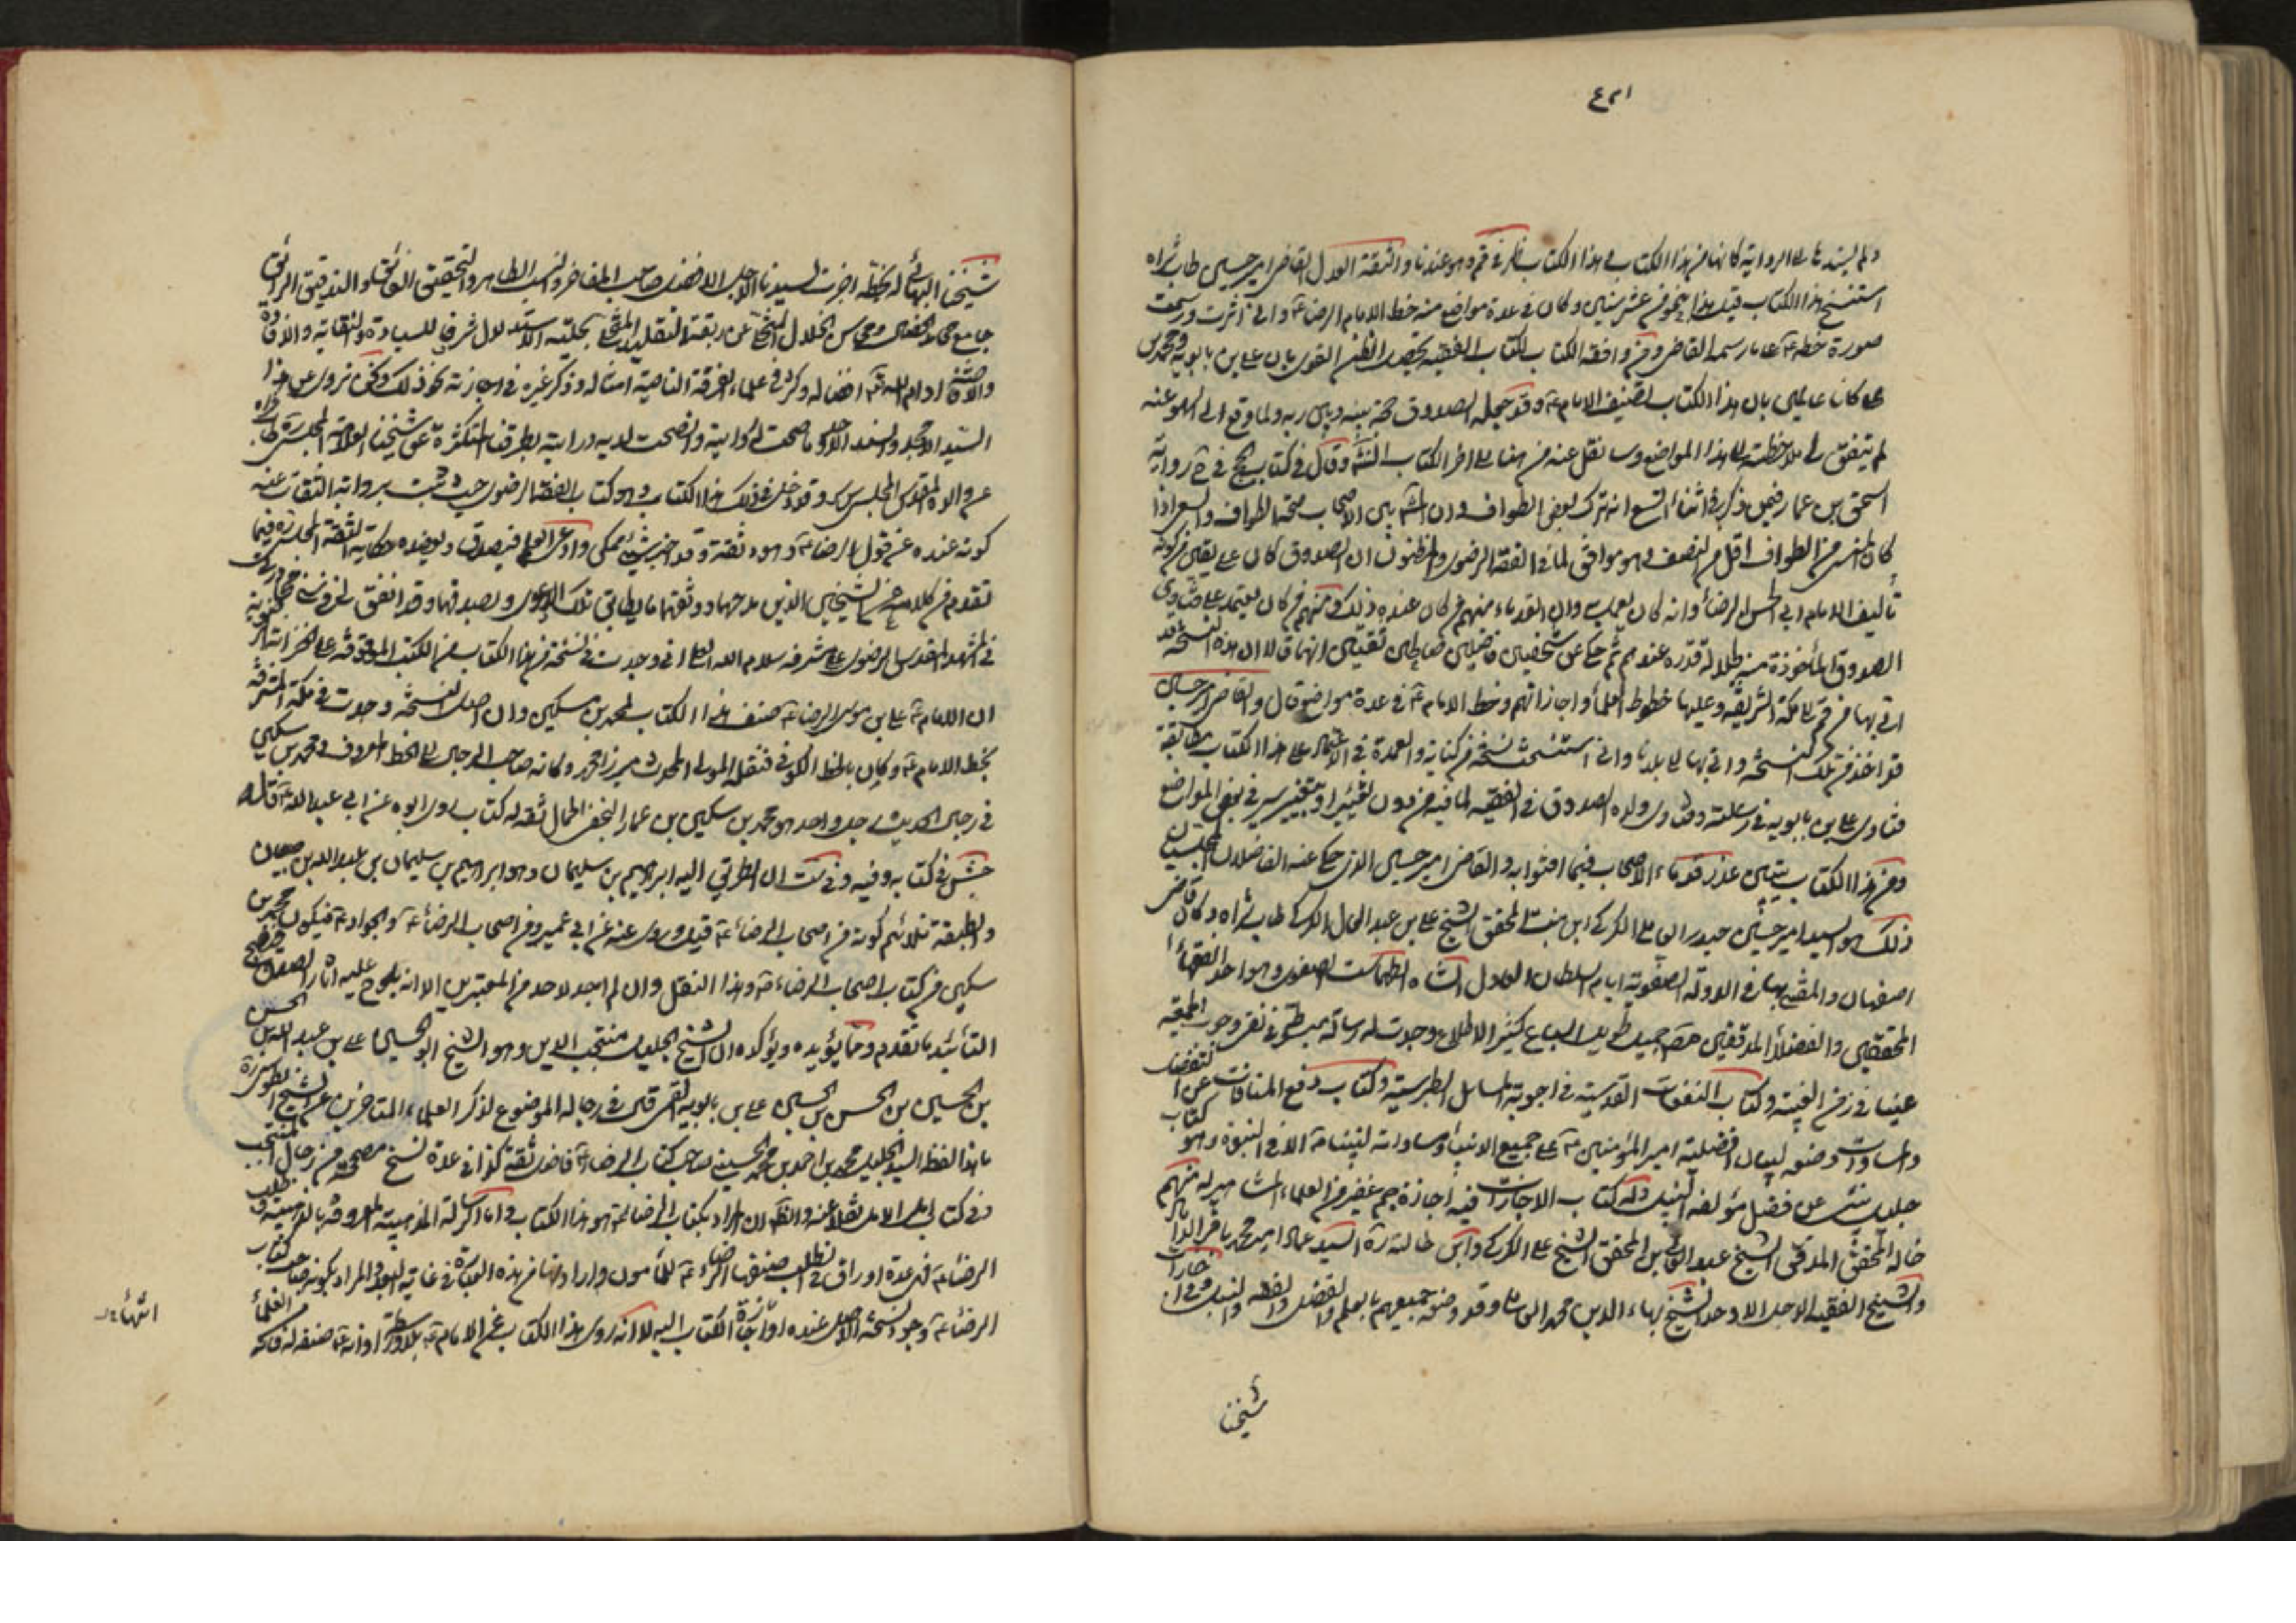 ٤٢١
ولم يسندها الى الرواية كانها من هذا الكتاب هذا الكتاب ظهر في قم وهو عندنا والثقة العدل القاضي امير حسين طاب ثراه
استنسخ هذا الكتاب قبل هذا بنحو من عشر سنين وكان في عدة مواضع منه خط الامام الرضا ع واني اثرت ورسمت
صورة خطه ع على ما رسمه القاضي ومن موافقة الكتاب لكتاب الفقيه يحصل الظن القوي بان علي بن بابويه ومحمد بن
علي كانا عالمين بان هذا الكتاب تصنيف الامام ع وقد جعله الصدوق حجة بينه وبين ربه ولما وقع السهو عنه
لم يتفق لي ملاحظته الى هذا المواضع وسانقل عنه من هنا الى اخر الكتاب انش وقال في كتاب الحج في رواية
اسحق بن عمار فيمن ذكر في اثناء السعي انه ترك بعض الطواف وان المش بين الاصحاب صحة الطواف والسعي اذا
كان المنسي من الطواف اقل من النصف وهو موافق لما في الفقه الرضوي والمظنون ان الصدوق كان على يقين من كونه
تأليف الامام ابي الحسن الرضا وانه كان يعمل به وان القدماء منهم من كان عنده ذلك ومنهم من كان يعتمد على فتاوى
الصدوق المأخوذة منه لجلالة قدره عندهم ثم حكى عن شخصين فاضلين صالحين ثقتين انهما قالا ان هذه النسخة قد
اتى بها من قم الى مكة الشريفة وعليها خطوط العلماء واجازاتهم وخط الامام ع في عدة مواضع قال والقاضي امير حسين
قد اخذ من تلك النسخة واتى بها الى بلدنا واني استنسخت نسخة من كتابه والعمدة في الاعتماد على هذا الكتاب مطابقة
فتاوى علي بن بابويه في رسالته وفتاوى ولده الصدوق في الفقيه لما فيه من دون تغيير او تغيير يسير في بعض المواضع
ومن هذا الكتاب يتبين عذر قدماء الاصحاب فيما افتوا به والقاضي امير حسين الذي حكى عنه الفاضلان المجلسيان
ذلك هو السيد امير حسين حيدر العاملي الكركي ابن بنت المحقق الشيخ علي بن عبد العال الكركي طاب ثراه وكان قاضي
اصفهان والمفتي بها في الدولة الصفوية ايام السلطان العادل الشاه طهماسب الصفوي وهو احد الفقهاء
المحققين والفضلاء المدققين مصنف مجيد طويل الباع كثير الاطلاع وجدت له رسالة مبسوطة في نفي وجوب الجمعة
عينا في زمن الغيبة وكتاب النفحات القدسية في اجوبة المسائل الطبرسية وكتاب دفع المنافاة عن التفضيل
والمساواة وضعه لبيان افضلية امير المؤمنين ع على جميع الانبياء ومساواته لنبينا ص الا في النبوة وهو كتاب
جليل ينبئ عن فضل مؤلفه النبيل وله كتاب الاجازات فيه اجازة جم غفير من العلماء المشاهير له منهم
خاله المحقق المدقق الشيخ عبد العالي بن المحقق الشيخ علي الكركي وابن خالته السيد عماد امير محمد باقر الداماد
والشيخ الفقيه الاجل الاوحد الشيخ بهاء الدين محمد العاملي وقد وصفه جميعهم بالعلم والفضل والفقه والنبل وفي اجازات
شيخنا
شيخنا البهائي له بخطه اجزت لسيدنا الاجل الافضل صاحب المفاخر والنسب الطاهر والتحقيق الفائق والتدقيق الرائق
جامع محامد الخصال ومحاسن الخلال المتخلي عن ربقة التقليد المتحلي بحلية الاستدلال شرفا للسيادة والنقابة والافادة
والافاضة ادام الله تع افضاله وكثر في علماء الفرقة الناجية امثاله وذكر غيره في اجازته نحو ذلك ونحن نروي عن هذا
السيد الامجد والسند الاوحد كلما صحت له روايته واتضحت لديه درايته بطرقنا المتكثرة عن شيخنا العلامة المجلسي طاب ثراه
عن والده المقدس المجلسي وقد دخل في ذلك هذا الكتاب وهو كتاب الفقه الرضوي حيث ثبت برواية الثقات عنه
كونه عنده من قول الرضا ع وهو ثقة وقد اخبر بشيء ممكن وادعى العلم فيصدق ويعضده حكاية الثقة المجلسي فيما
تقدم من كلامه عن الشيخين الذين مدحهما ووثقهما ما يطابق تلك الدعوى ويصدقها وقد اتفق لي في سني مجاورتي
في المشهد المقدس الرضوي على مشرفه سلام الله العلي اني وجدت في نسخة من هذا الكتاب من الكتب الموقوفة على الخزانة الرضوية
ان الامام ع علي بن موسى الرضا ع صنف هذا الكتاب لمحمد بن سكين وان اصل النسخة وجدت في مكة المشرفة
بخط الامام ع وكان بالخط الكوفي فنقله المولى المحدث ميرزا محمد وكانه صاحب الرجال الى الخط المعروف ومحمد بن سكين
في رجال الحديث رجل واحد هو محمد بن سكين بن عمار النخعي الجمال ثقة له كتاب روى ابوه عن ابي عبد الله ع قاله
جش في كتابه وفيه وفي ست ان الطريق اليه ابراهيم بن سليمان وهو ابراهيم بن سليمان بن عبد الله بن حيان
والطبقة تلائم كونه من اصحاب الرضا ع قيل وروى عنه ابن ابي عمير وهو من اصحاب الرضا ع والجواد ع فيكون محمد بن
سكين من كتاب اصحاب الرضا ع وهذا النقل وان لم اجده لاحد من المعتبرين الا انه يلوح عليه اثار الصدق ويصلح
التأييد بما تقدم ومما يؤيده ويؤكده ان الشيخ الجليل منتجب الدين وهو الشيخ ابو الحسن علي بن عبيد الله بن الحسن
بن الحسين بن الحسن بن الحسين علي بن بابويه القمي قال في رجاله الموضوع لذكر العلماء المتاخرين عن الشيخ الطوسي ره
ما هذا لفظه السيد الجليل محمد بن احمد بن محمد الحسيني صاحب كتاب الرضا ع فاضل ثقة كذا في عدة نسخ مصححة من رجال المنتجب
وفي كتاب امل الامل نقلا عنه والظاهر ان المراد بكتاب الرضا ع هو هذا الكتاب واما الرسالة المذهبة المعروفة بالذهبية في طب
الرضا ع فهي عدة اوراق في الطلب صنفها الرضا ع للمأمون وارادتها من هذه العبارة في غاية البعد والمراد بكونه صاحب كتاب
الرضا ع وجود نسخة الاصل عنده او اجازة الكتاب اليه لا انه روى هذا الكتاب عن الامام ع بلا واسطة او انه ع صنفه له فانه من العلماء
انتهى